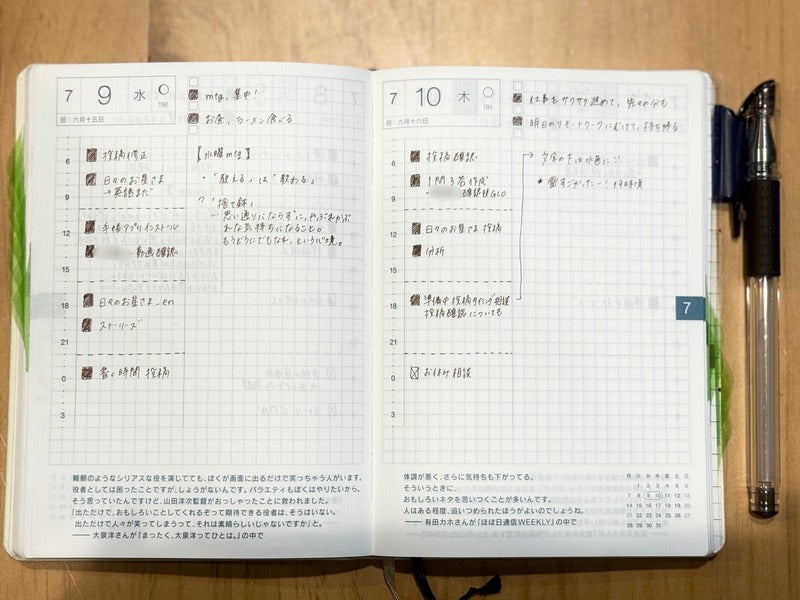 7 9 水
190
旧：六月十五日
mtg, 集中！
お昼、ラーメン食べる
6
9
12
15
18
21
0
3
投稿修正
日々のお星さま
→英語まだ
手帳アプリインストール
動画確認
日々のお星さま_en
ストーリーズ
書く時間 投稿
【水曜mtg】
・「教える」は「教わる」
？「捨て鉢」
思い通りにならずに、やぶれかぶ
れな気持ちになること。
もうどうにでもなれ、という心境。
頼朝のようなシリアスな役を演じてても、ぼくが画面に出るだけで笑っちゃう人がいます。
役者としては困ったことですが、しょうがないんです。バラエティもぼくはやりたいから。
そう思っていたんですけど、山田洋次監督がおっしゃったことに救われました。
「出ただけで、おもしろいことしてくれるぞって期待できる役者は、そうはいない。
出ただけで人々が笑ってしまうって、それは素晴らしいじゃないですか」と。
—— 大泉洋さんが『まったく、大泉洋ってひとは。』の中で
7 10 木
191
旧：六月十六日
仕事をサクサク進めて、先々分も
明日のリモートワークにむけて、持ち帰る
6
9
12
15
18
21
0
3
投稿確認
1問3答作成
確認後GO
日々のお星さま 投稿
分析
準備中 投稿タイミング相談
投稿確認についても
お休み相談
文字の下は水色に!!
★ 雷すごかったー！ 19時頃
7
体調が悪く、さらに気持ちも下がってる。
そういうときに、
おもしろいネタを思いつくことが多いんです。
人はある程度、追いつめられたほうがよいのでしょうね。
—— 有田カホさんが『ほぼ日通信WEEKLY』の中で
月 火 水 木 金 土 日
1 2 3 4 5 6
7 8 9 10 11 12 13
14 15 16 17 18 19 20
21 22 23 24 25 26 27
28 29 30 31